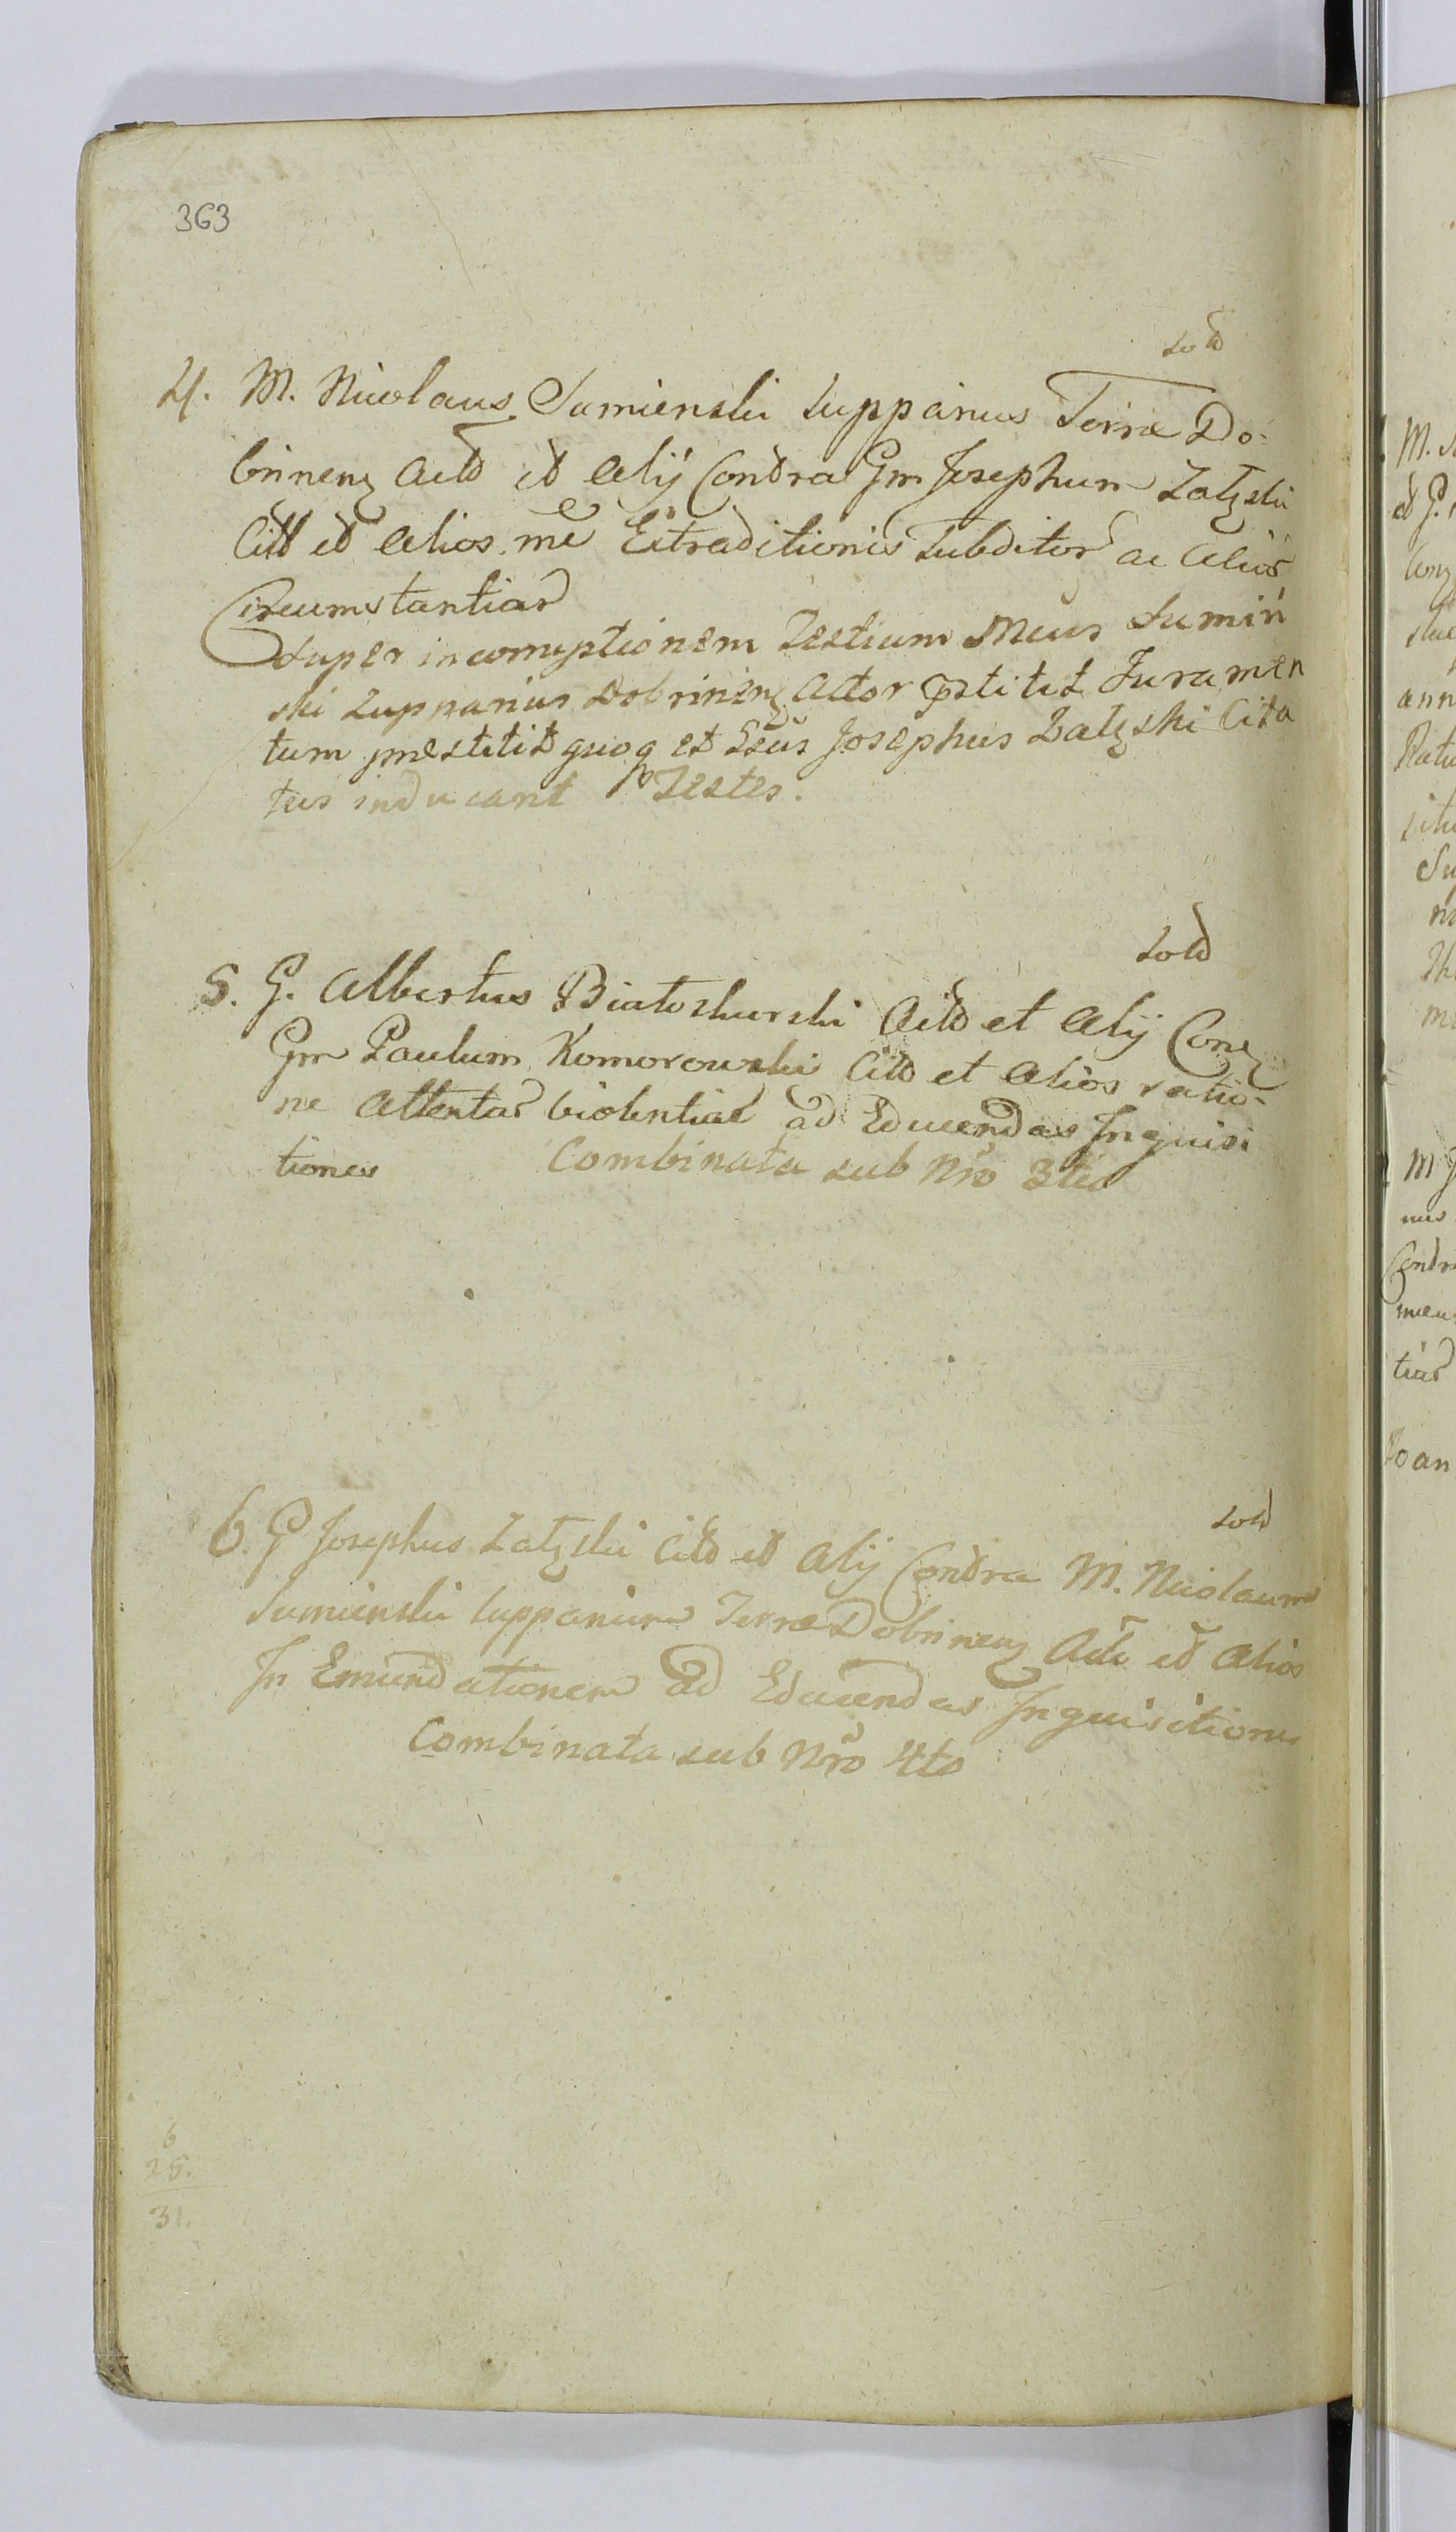 363
sold
4. M. Nicolaus Sumienski Zuppanus Terræ Do-
brinenz Actor et Alij Contra Gm Josephum Zalzski
Citt et Alios me Extraditionis Subditor ac Alior
Circumstantiar
Super incorruptionem Testium Mcus Sumiń
ski Zuppanus Dobrinenz Actor pstitit Juramen
tum præstitit quoq et Gsus Josephus Zalzski Cita
tus inducant Testes.
sold
5. G. Albertus Białoskurski Actt et Alij Conz
Gm Paulum Komorowski Citt et Alios ratio-
ne Attentar Violentiar ad Educendas Inquisi
tiones Combinata sub Nro 3tio
sold
6. G Josephus Zalzski Citt et Alij Contra M. Nicolaum
Sumienski Zuppanum Terræ Dobrinenz Act et Alios
In Emundationem ad Educendas Inquisitiones
Combinata sub Nro 4to
6
25.
31.